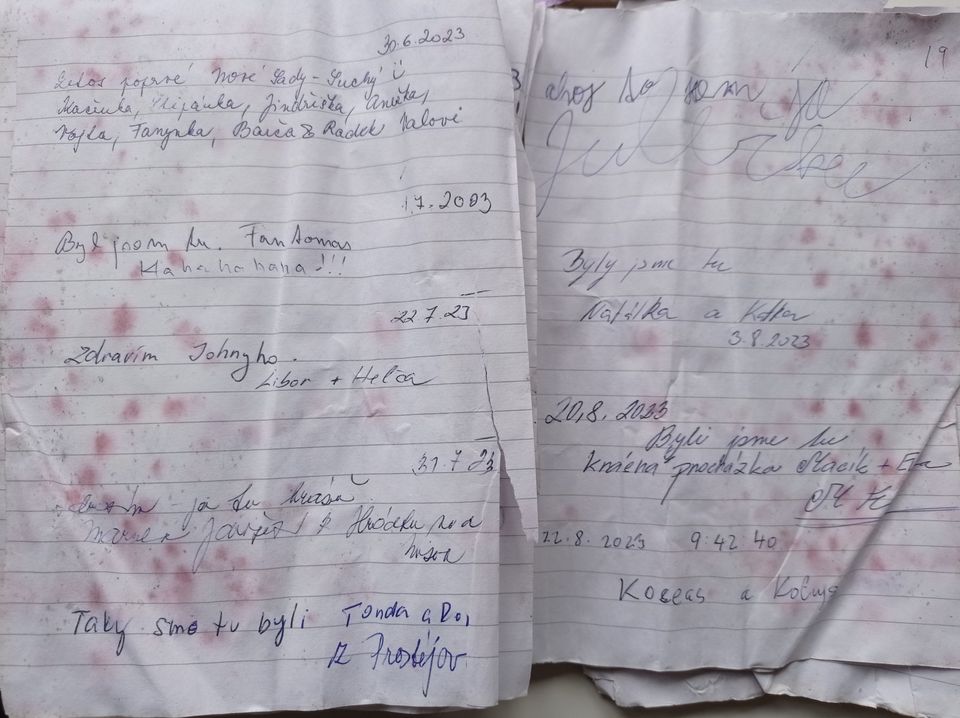 30.6.2023
Letos poprvé Nové Sady - Suchý ii
Macinka, Štěpánka, Jindřiška, Anička,
Vojta, Fanynka, Barča & Radek Valovi
1.7.2003
Byl jsem tu. Fantomas
Hahahahaha!!!
22.7.23
Zdravím Johnyho.
Libor + Helča
31.7.23
je tu krásně
Hrádku nad
Nisou
Taky sme tu byli Tonda a
z Prostějov
19
ahoj to jsem já
Byly jsme tu
Natálka a
3.8.2023
20.8.2023
Byli jsme tu
krásná procházka Macík + Eva
22.8.2023 9:42:40
a